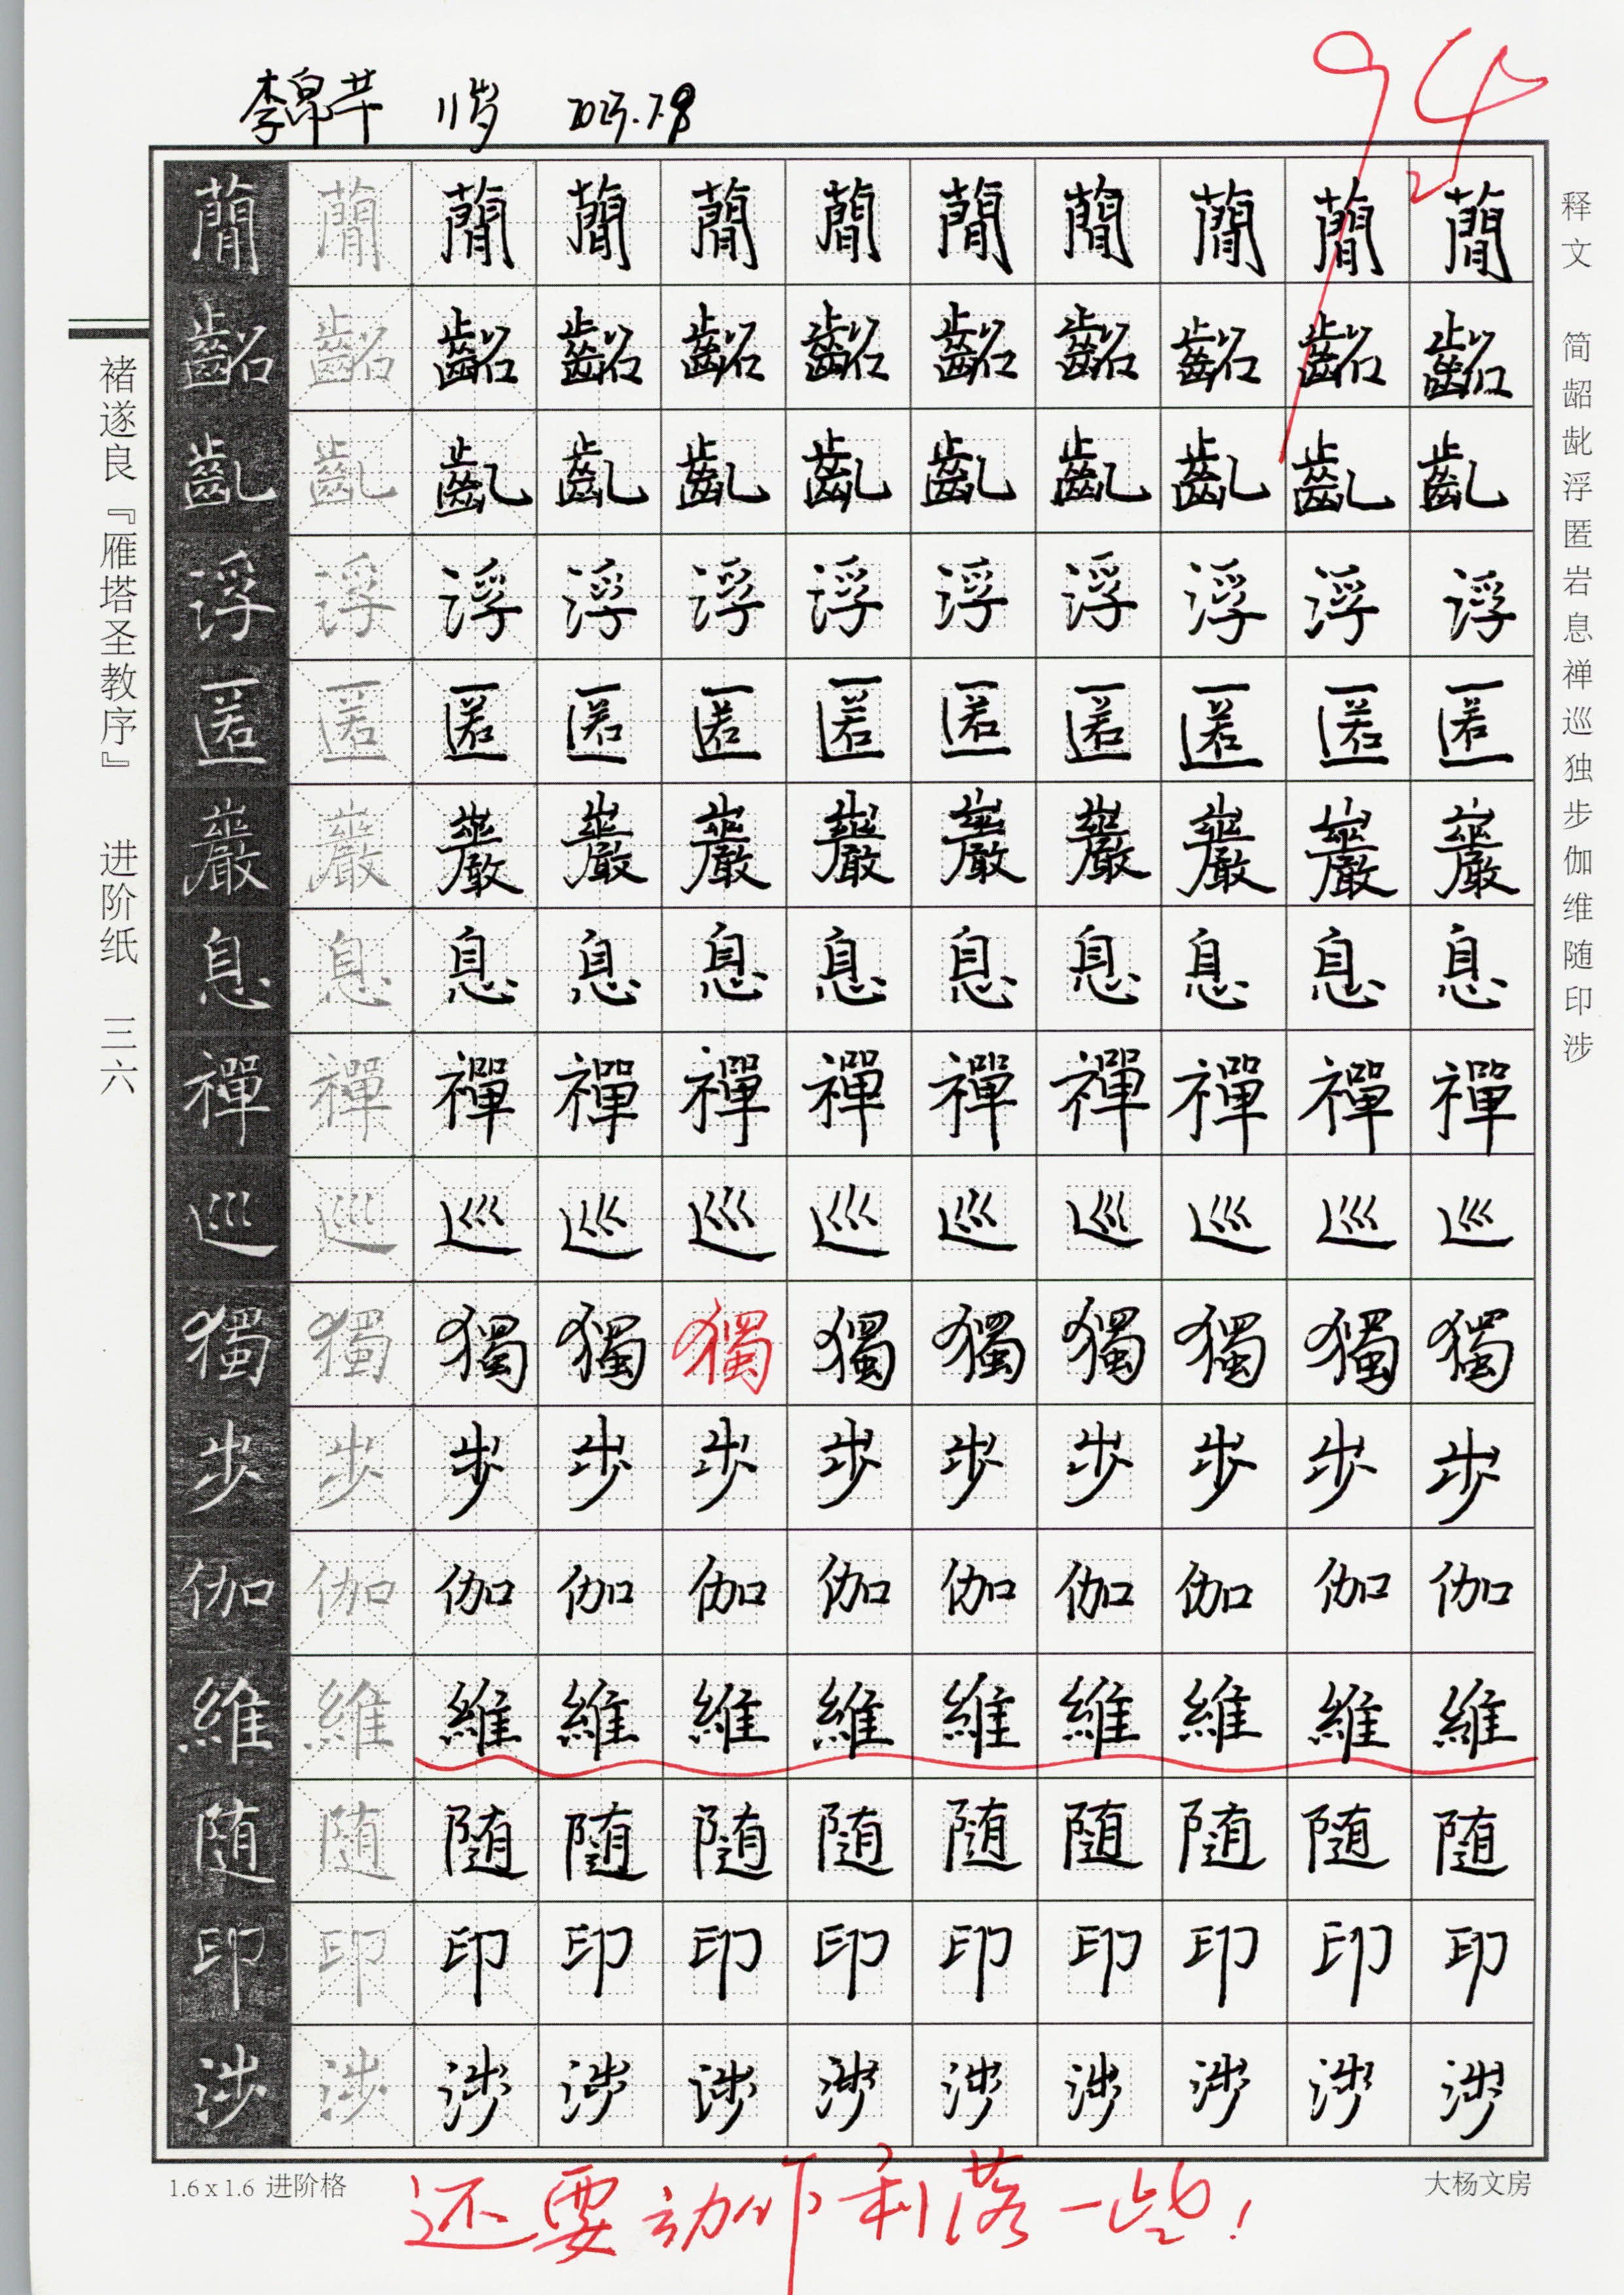 李 11岁
94
蕑蕑蕑蕑蕑蕑蕑蕑蕑蕑蕑
齠齠齠齠齠齠齠齠齠齠齠
齔齔齔齔齔齔齔齔齔齔齔
浮浮浮浮浮浮浮浮浮浮浮
匿匿匿匿匿匿匿匿匿匿匿
巖巖巖巖巖巖巖巖巖巖巖
息息息息息息息息息息息
禪禪禪禪禪禪禪禪禪禪禪
巡巡巡巡巡巡巡巡巡巡巡
獨獨獨獨獨獨獨獨獨獨獨
步步步步步步步步步步步
伽伽伽伽伽伽伽伽伽伽伽
維維維維維維維維維維維
随随随随随随随随随随随
印印印印印印印印印印印
涉涉涉涉涉涉涉涉涉涉涉
释文 简龆龀浮匿岩息禅巡独步伽维随印涉
褚遂良『雁塔圣教序』 进阶纸 三六
1.6 x 1.6 进阶格
大杨文房
还要动作利落一些！